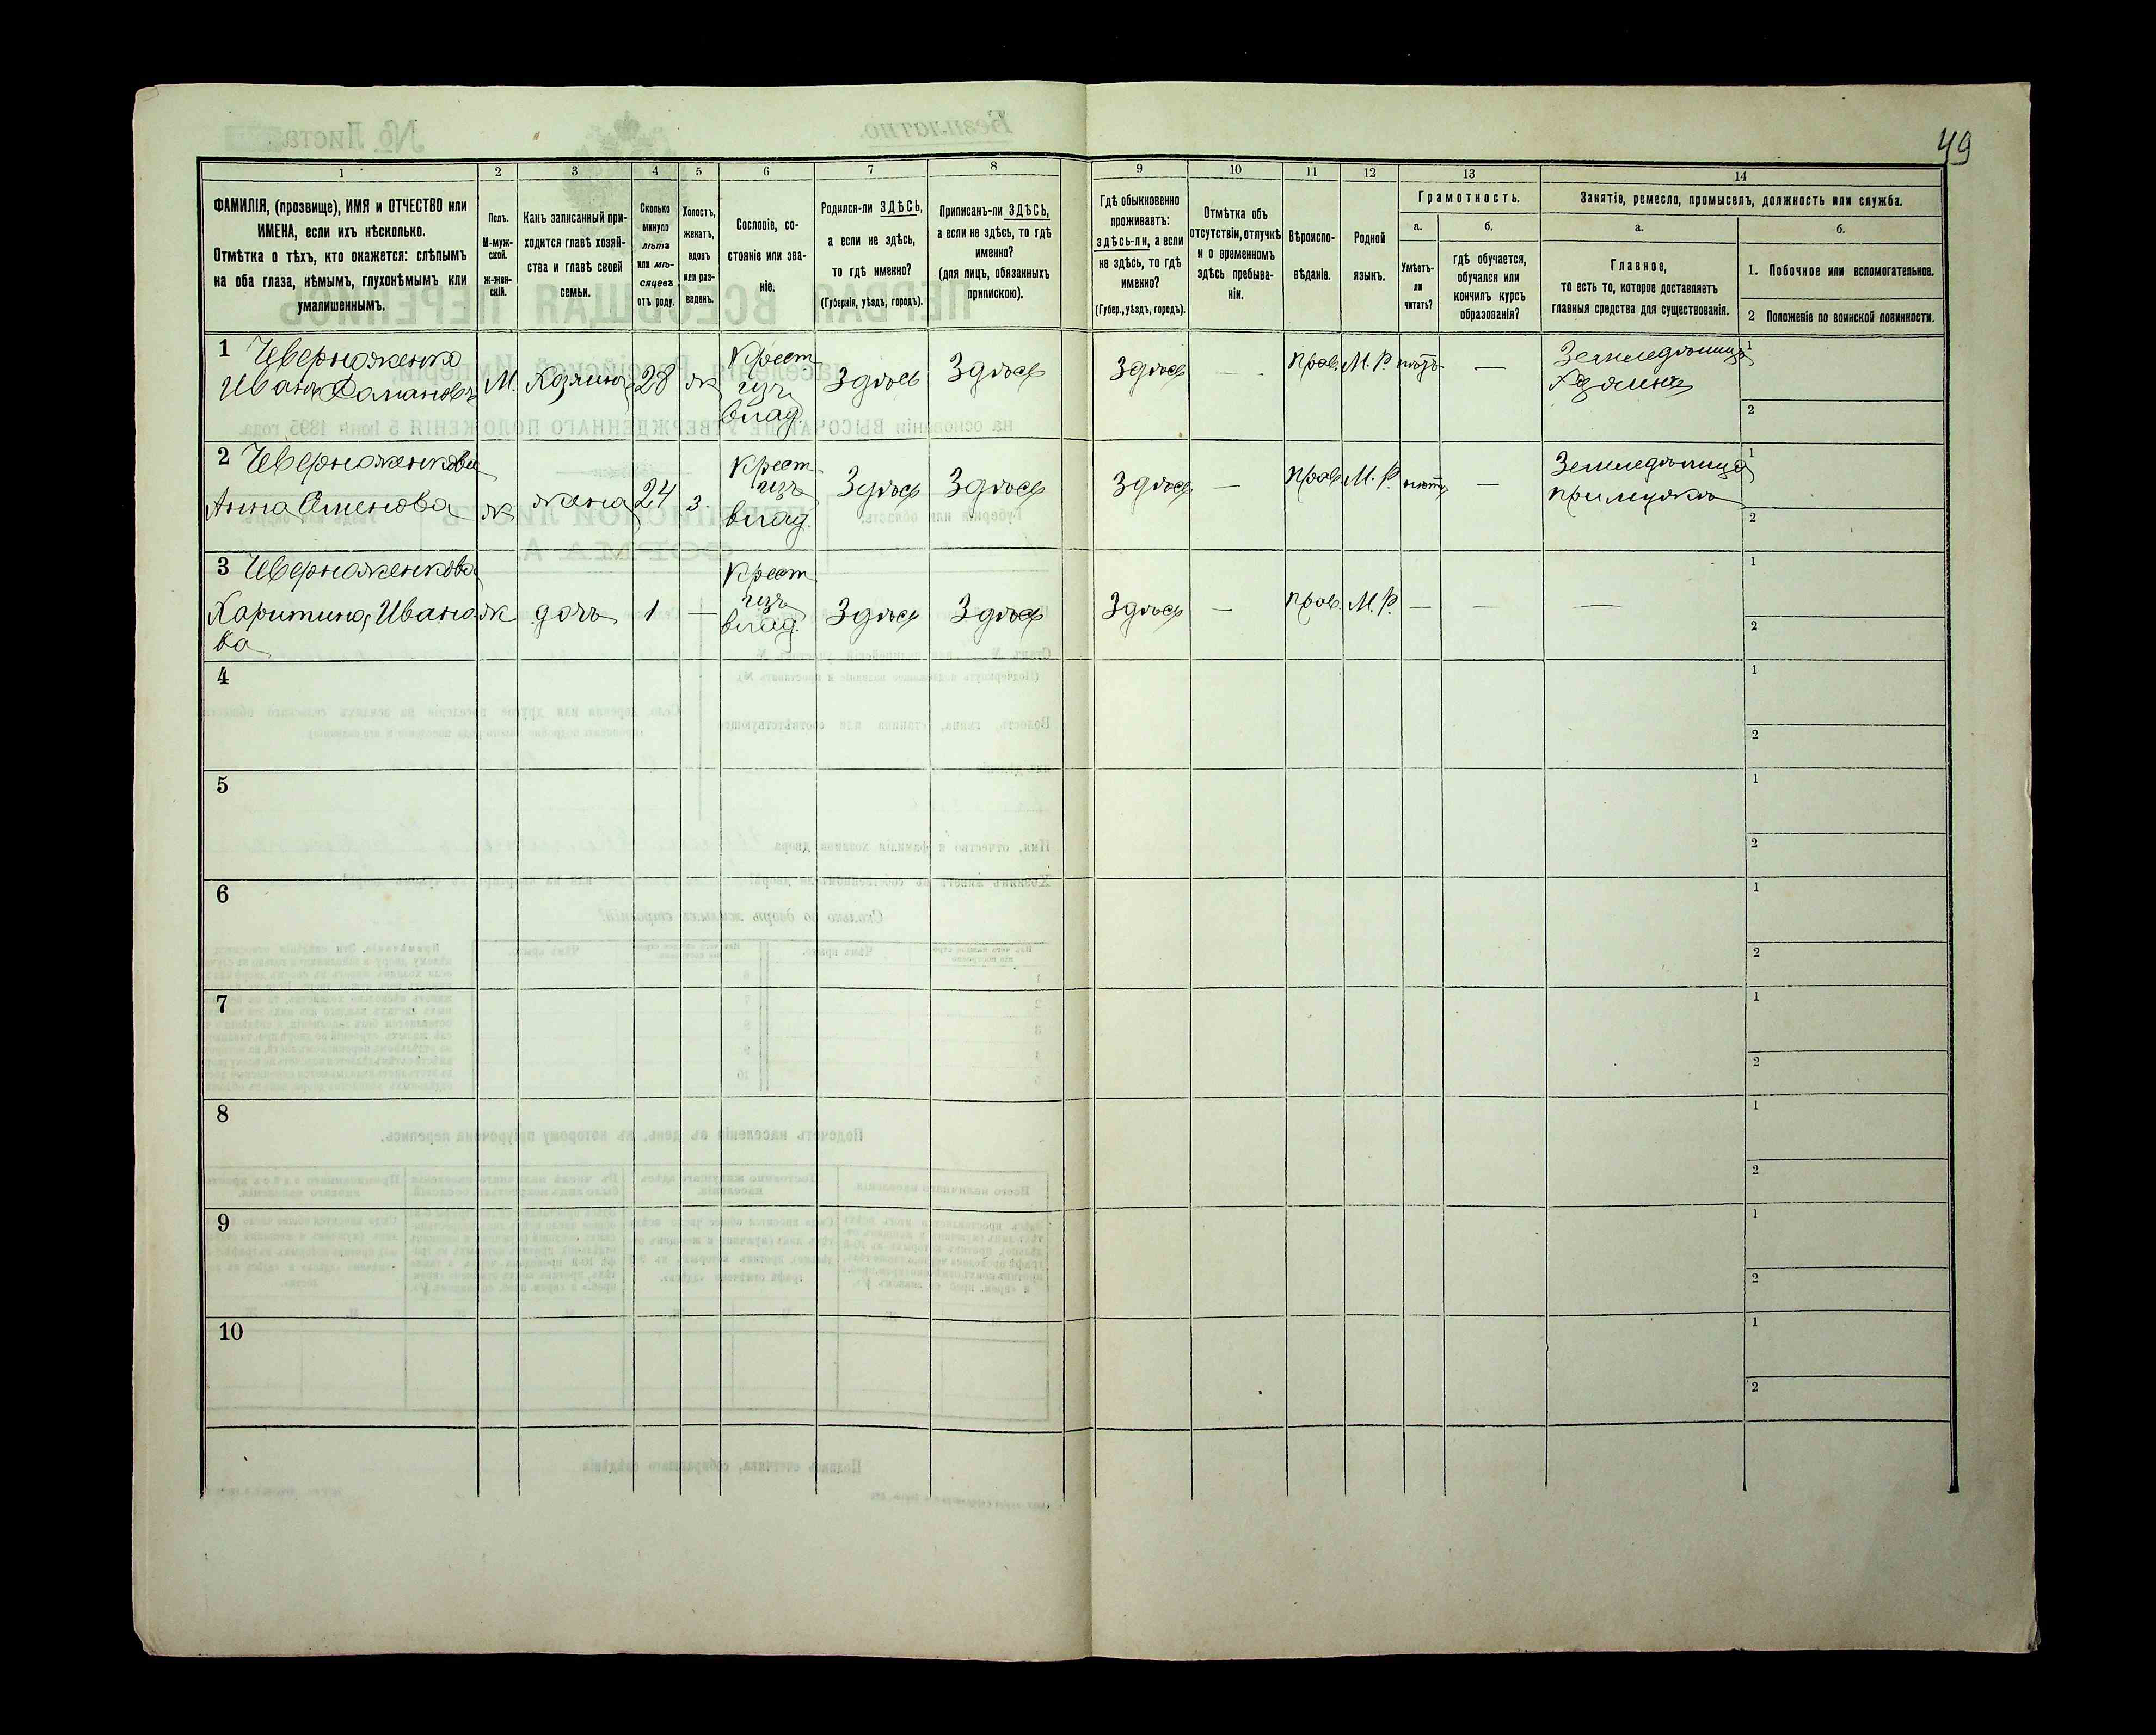 49
1 2 3 4 5 6 7 8 9 10 11 12 13 14
ФАМИЛІЯ, (прозвище), ИМЯ и ОТЧЕСТВО или
ИМЕНА, если ихъ нѣсколько.
Отмѣтка о тѣхъ, кто окажется: слѣпымъ
на оба глаза, нѣмымъ, глухонѣмымъ или
умалишеннымъ.
Полъ.
М-муж-
ской.
ж-жен-
скій.
Какъ записанный при-
ходится главѣ хозяй-
ства и главѣ своей
семьи.
Сколько
минуло
лѣтъ
или мѣ-
сяцевъ
отъ роду.
Холостъ,
женатъ,
вдовъ
или раз-
веденъ.
Сословіе, со-
стояніе или зва-
ніе.
Родился-ли ЗДѢСЬ,
а если не здѣсь,
то гдѣ именно?
(Губернія, уѣздъ, городъ).
Приписанъ-ли ЗДѢСЬ,
а если не здѣсь, то гдѣ
именно?
(для лицъ, обязанныхъ
припискою).
Гдѣ обыкновенно
проживаетъ:
здѣсь-ли, а если
не здѣсь, то гдѣ
именно?
(Губер., уѣздъ, городъ).
Отмѣтка объ
отсутствіи, отлучкѣ
и о временномъ
здѣсь пребыва-
ніи.
Вѣроиспо-
вѣданіе.
Родной
языкъ.
Грамотность.
а.
Умѣетъ-
ли
читать?
б.
гдѣ обучается,
обучался или
кончилъ курсъ
образованія?
Занятіе, ремесло, промыселъ, должность или служба.
а.
Главное,
то есть то, которое доставляетъ
главныя средства для существованія.
б.
1. Побочное или вспомогательное.
2 Положеніе по воинской повинности.
1 Чверноженко
Иванъ Романовъ
М. Хозяинъ 28 ж
Крест
изъ
влад.
Здѣсь Здѣсь Здѣсь — Прав. М. Р. нѣтъ —
Земледѣлецъ
Хозяинъ
1
2
2 Чверноженкова
Анна Семенова
ж жена 24 з.
Крест
изъ
влад.
Здѣсь Здѣсь Здѣсь — Прав. М. Р. нѣтъ —
Земледѣлица
при мужѣ
1
2
3 Чверноженкова
Харитина Ивано-
ва
ж дочь 1 —
Крест
изъ
влад.
Здѣсь Здѣсь Здѣсь — Прав. М. Р. — — —
1
2
4
1
2
5
1
2
6
1
2
7
1
2
8
1
2
9
1
2
10
1
2